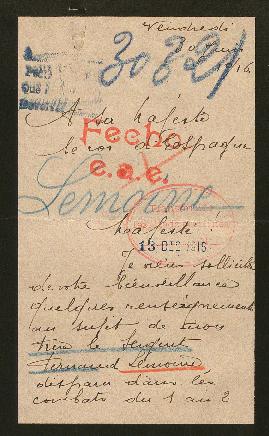 Vendredi
30821
A sa Majesté
le roi d'Espagne
Fecho
e.a.e.
Lemoine
Majesté
13 DEC 1916
Je viens solliciter
de votre bienveillance
quelques renseignements
au sujet de mon
frère le Sergent
Fernand Lemoine
disparu dans les
combats du 1 au 2